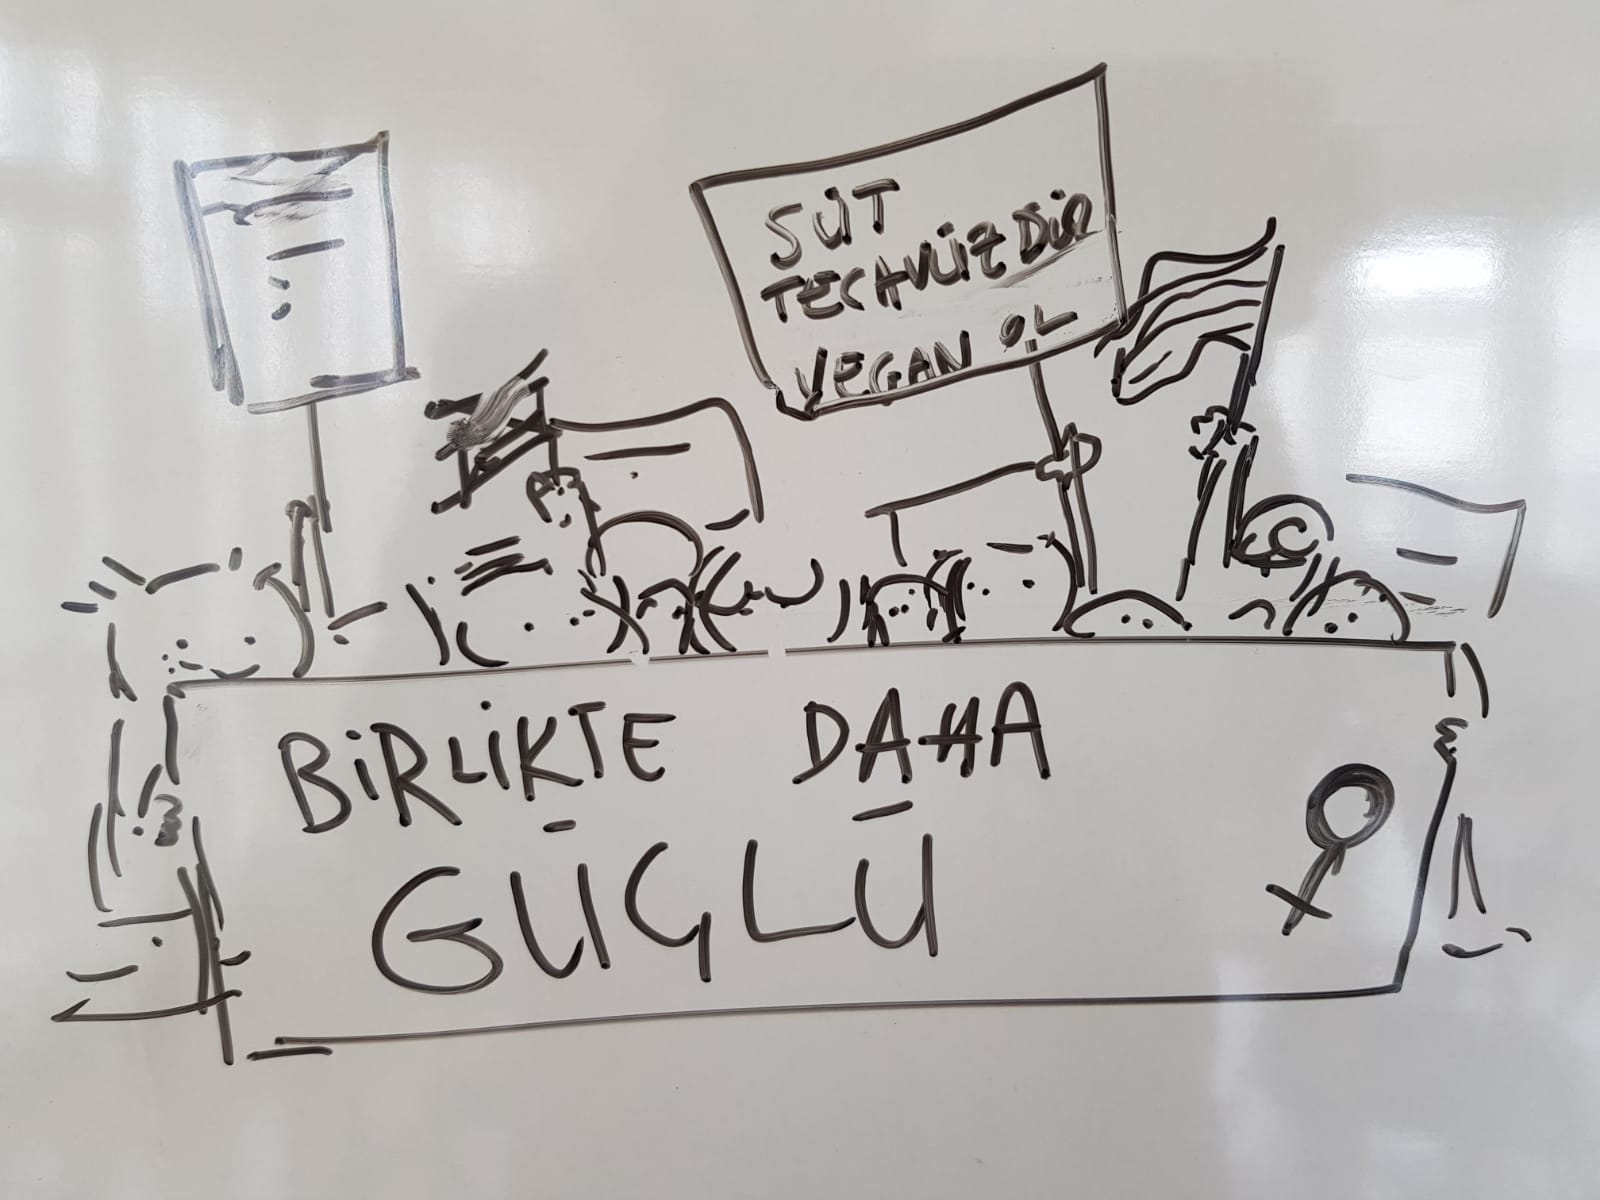 SÜT
TECAVÜZDÜR
VEGAN OL
BİRLİKTE DAHA
GÜÇLÜ